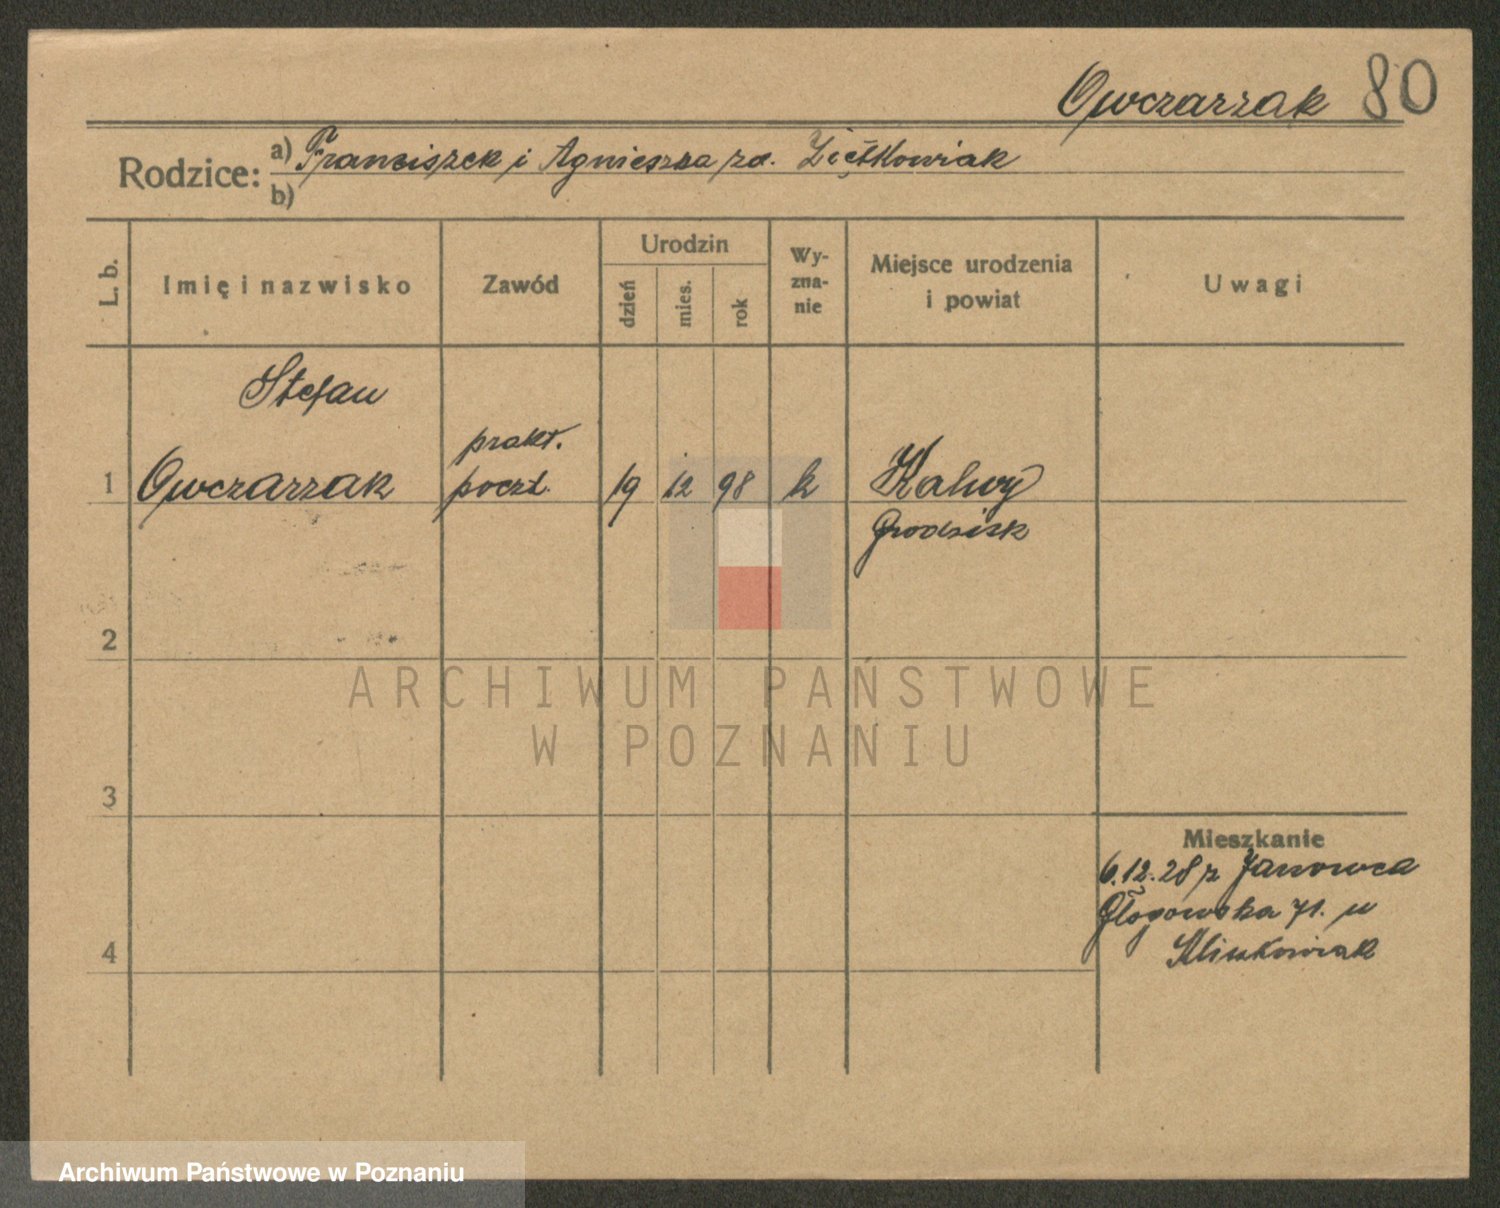 Owczarzak 80
Rodzice: a) Franciszek i Agnieszka zd. Ziętkowiak
b)
L. b.
Imię i nazwisko
Zawód
Urodzin
dzień
mies.
rok
Wy-
zna-
nie
Miejsce urodzenia
i powiat
Uwagi
Stefan
prakt.
1 Owczarzak poczt. 19 12 98 k Kalwy
Grodzisk
2
ARCHIWUM PAŃSTWOWE
W POZNANIU
3
Mieszkanie
6.12.28 z Janowca
Głogowska 71. u
4
Archiwum Państwowe w Poznaniu